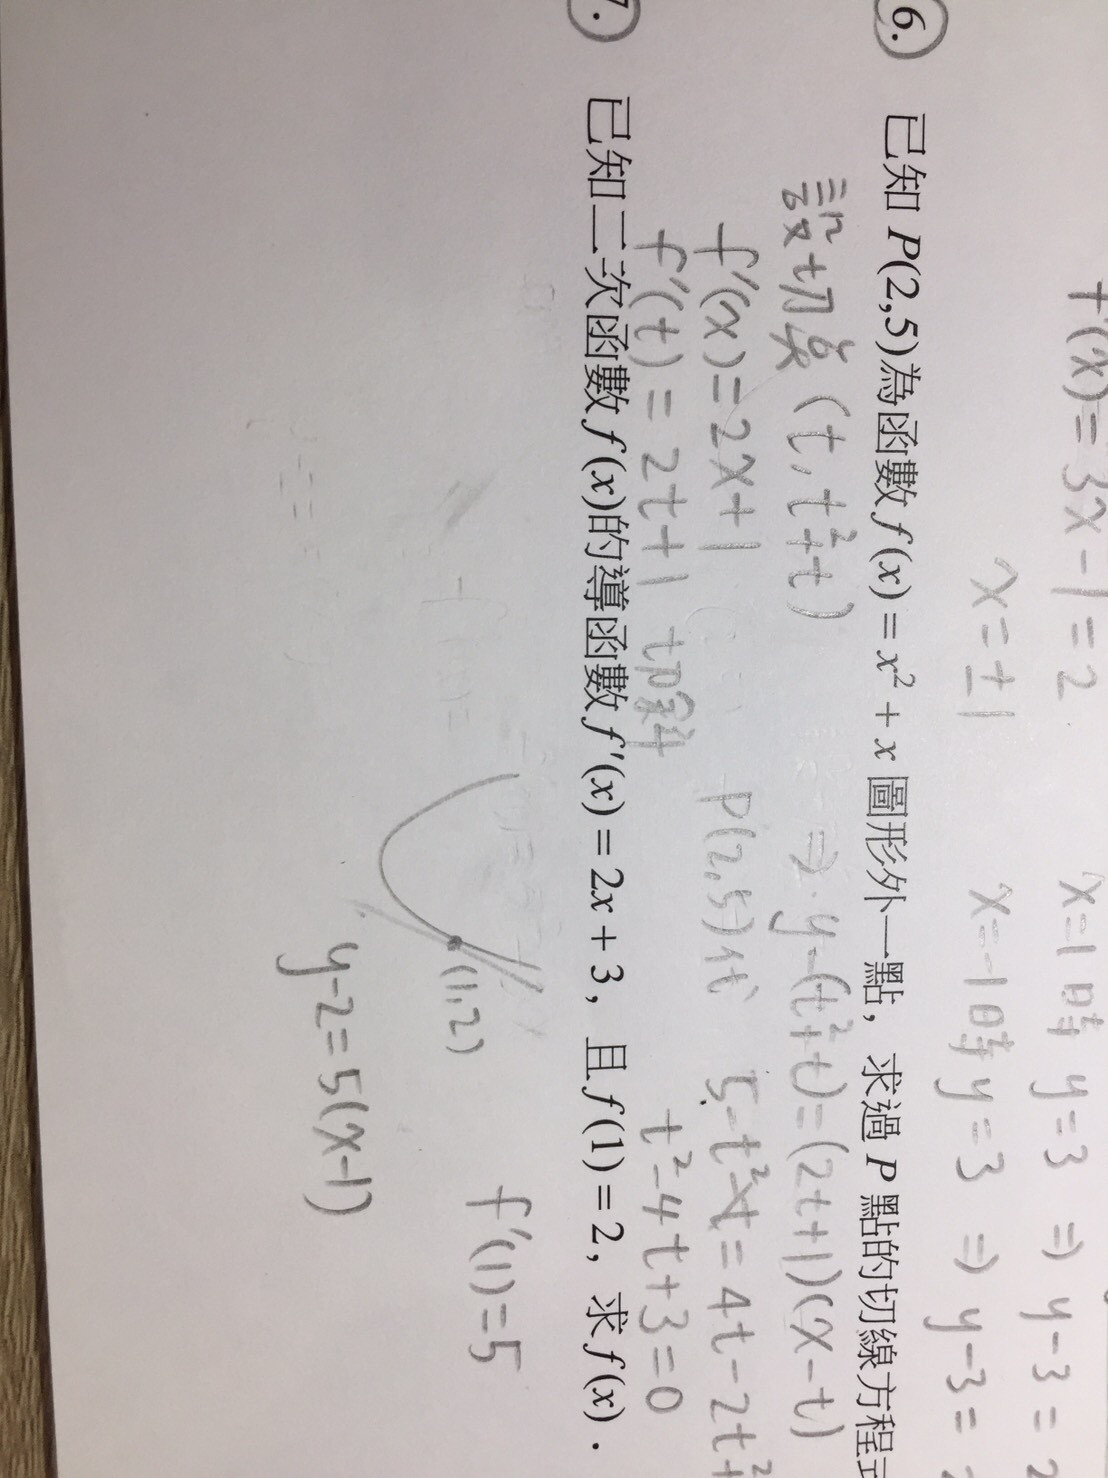 f'(x)=3x-1=2 x=1時 y=3 ⇒ y-3=2
x=±1 x=-1時 y=3 ⇒ y-3=
6. 已知 P(2,5)為函數 f(x)=x²+x 圖形外一點,求過 P 點的切線方程式
設切點 (t, t²+t) ⇒ y-(t²+t)=(2t+1)(x-t)
f'(x)=2x+1 P(2,5)代 5-t²-t=4t-2t²+
f'(t)=2t+1 切斜 t²-4t+3=0
7. 已知二次函數 f(x)的導函數 f'(x)=2x+3,且 f(1)=2,求 f(x).
f'(1)=5
(1,2)
y-2=5(x-1)